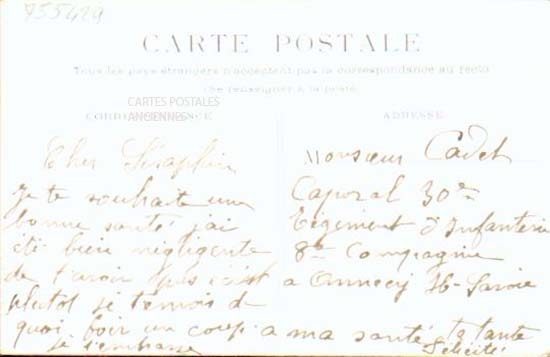 755429
CARTE POSTALE
Tous les pays étrangers n'acceptent pas la correspondance au recto
(Se renseigner à la poste)
CARTES POSTALES
ANCIENNES
CORRESPONDANCE
ADRESSE
Cher Séraphin
je te souhaite une
bonne santé j'ai
été bien négligente
de t'avoir pas c'est
plutot je t'envois d
quoi boir un coup a ma santé ta tante
je t'embrasse Félicité
Monsieur Cadet
Caporal 30me
Régiment d'Infanterie
8e Compagnie
a Annecy Hte Savoie